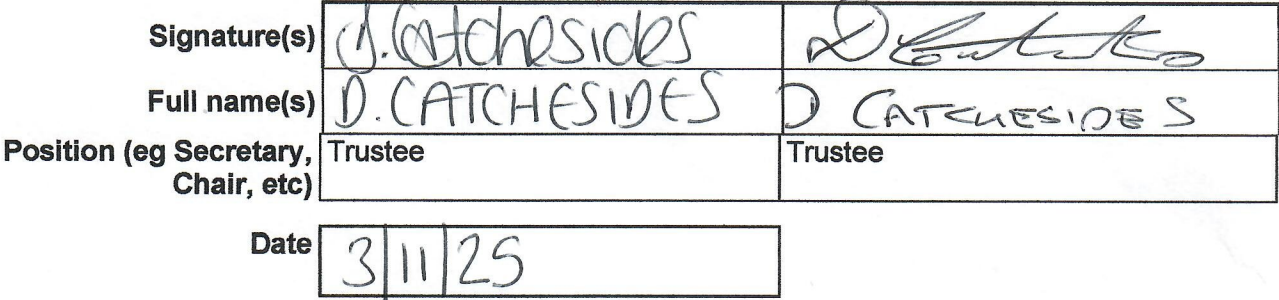 Signature(s) J. Catchesides
Full name(s) D. CATCHESIDES D CATCHESIDES
Position (eg Secretary, Trustee Trustee
Chair, etc)
Date 3/11/25